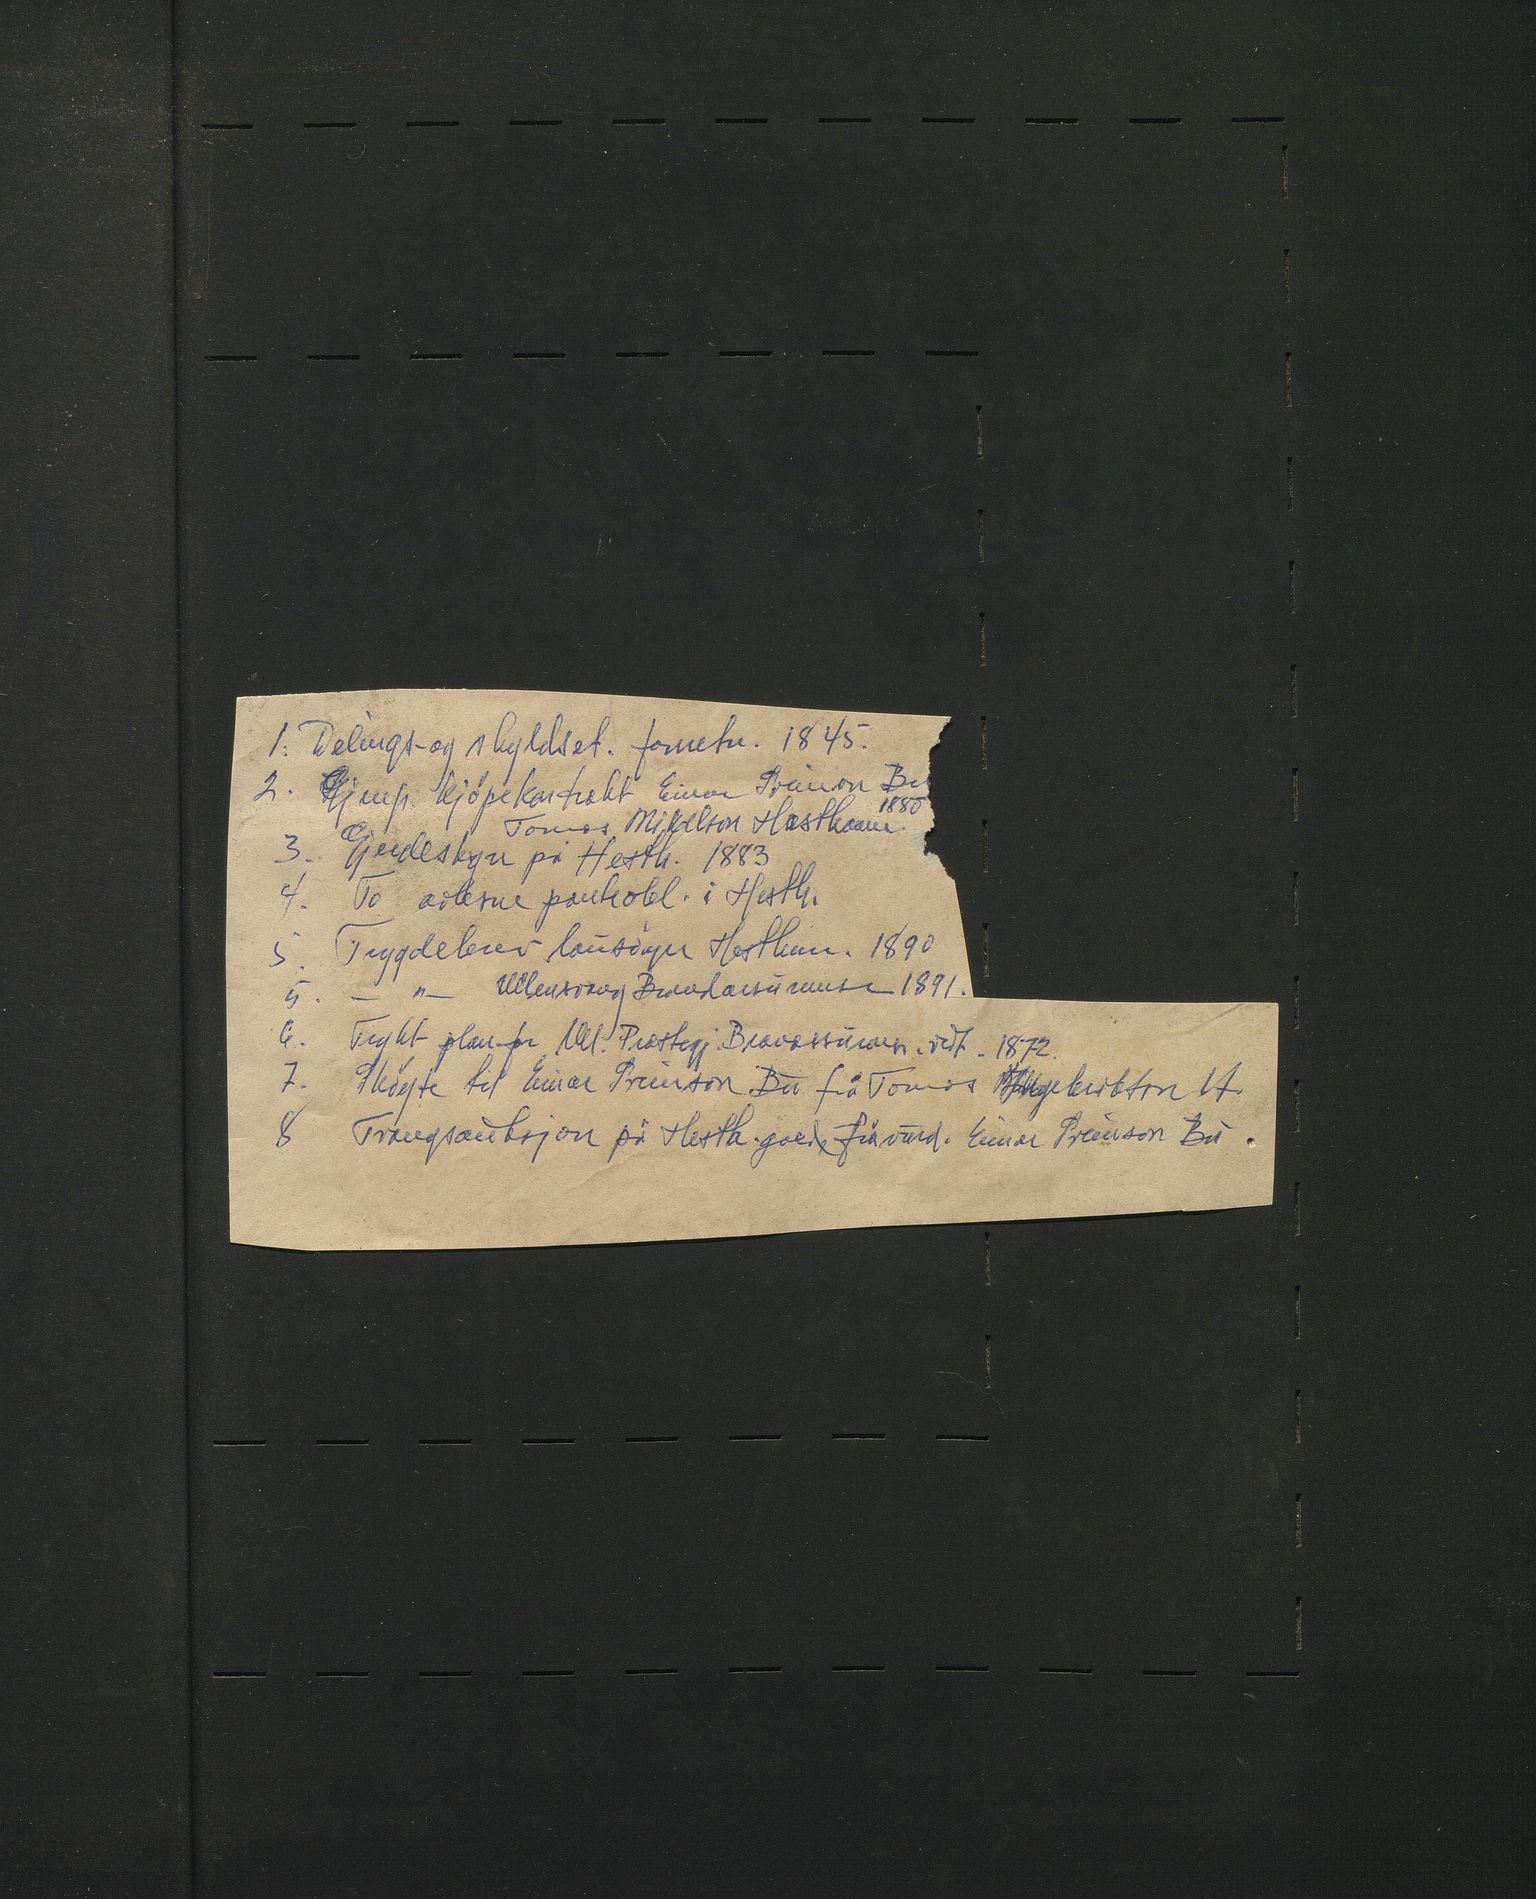 1. Delings- og skyldset. forretn. 1845.
2. Gjenp. kjöpekontrakt Einar Preimson Bu
1880
Tomas Mikkelson Hestham.
3. Gjerdeskyn på Hesth. 1883
4. To avlesne pantobl. i Hesth.
5. Trygdebrev lausöyre Hestham. 1890
5. — " — Ullensvang Brandassuranse 1891.
6. Trykt plan for Ull. Prestegj. Brandassurans. vedt. 1872.
7. Sköyte til Einar Preimson Bu frå Tomas H.
8 Trangsauksjon på Hesth. gard, frå vurd. Einar Preimson Bu.